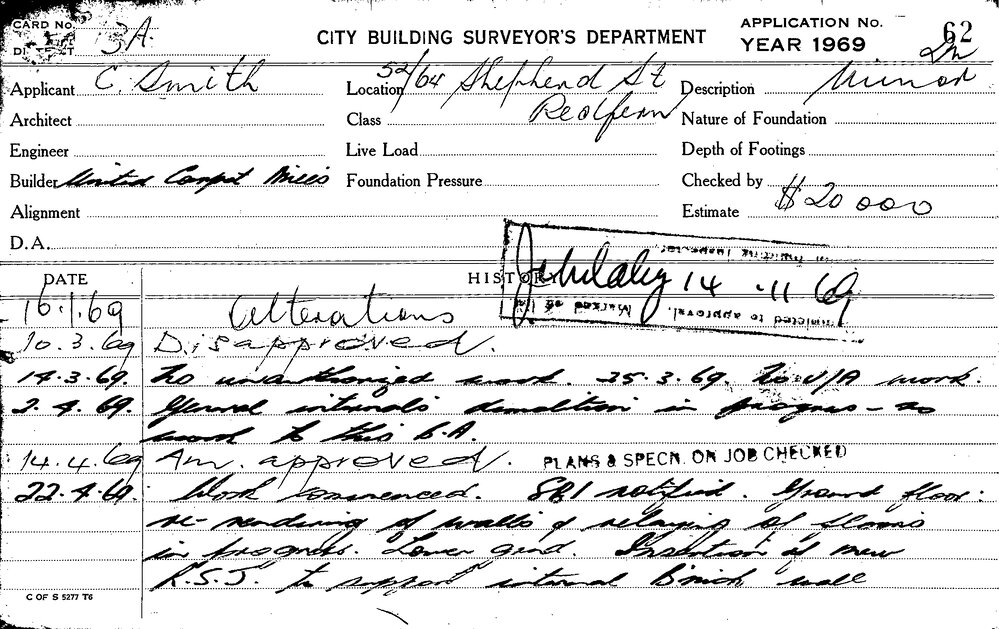 CARD No. 3A.
CITY BUILDING SURVEYOR'S DEPARTMENT
APPLICATION No. 62
YEAR 1969
Applicant C. Smith
Location 52/64 Shepherd St Redfern
Description Minor
Architect
Class
Nature of Foundation
Engineer
Live Load
Depth of Footings
Builder United Carpet Mills
Foundation Pressure
Checked by
Alignment
Estimate $20000
D.A.
14 .11 69
DATE HISTORY
16.1.69 Alterations
10.3.69 Disapproved.
14.3.69. No unauthorized work. 25.3.69. No U/A work.
2.4.69. General internals demolition in progress - no
work to this B.A.
14.4.69 Am. approved. PLANS & SPECN. ON JOB CHECKED
22.4.69. Work commenced. S81 notified. Ground floor:
re-rendering of walls & relaying of floors
in progress. Lower grnd. Insertion of new
R.S.J. to support internal brick wall
C OF S 5277 T6